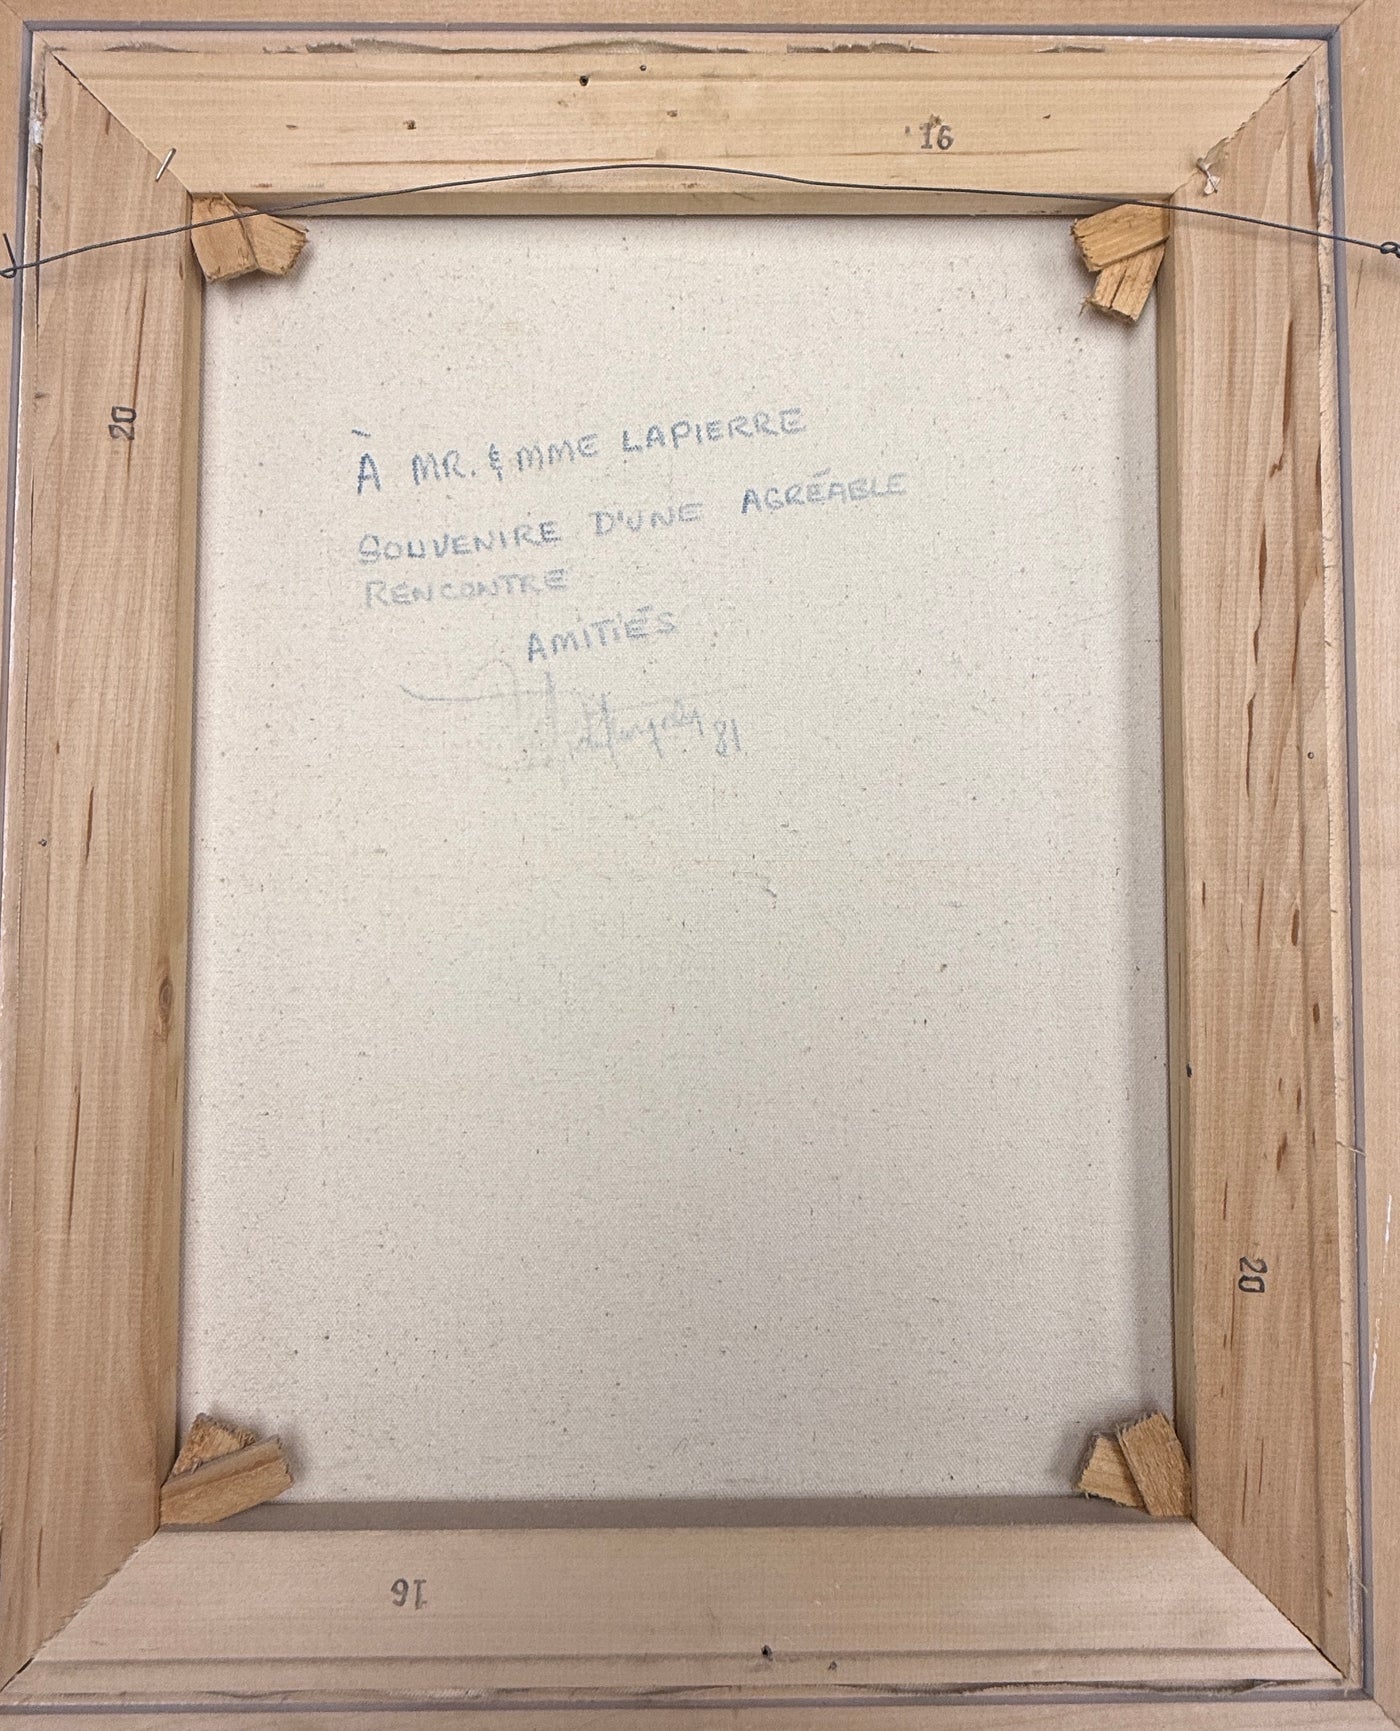 16
20
À MR. & MME LAPIERRE
SOUVENIRE D'UNE AGRÉABLE
RENCONTRE
AMITIÉS
81
20
16